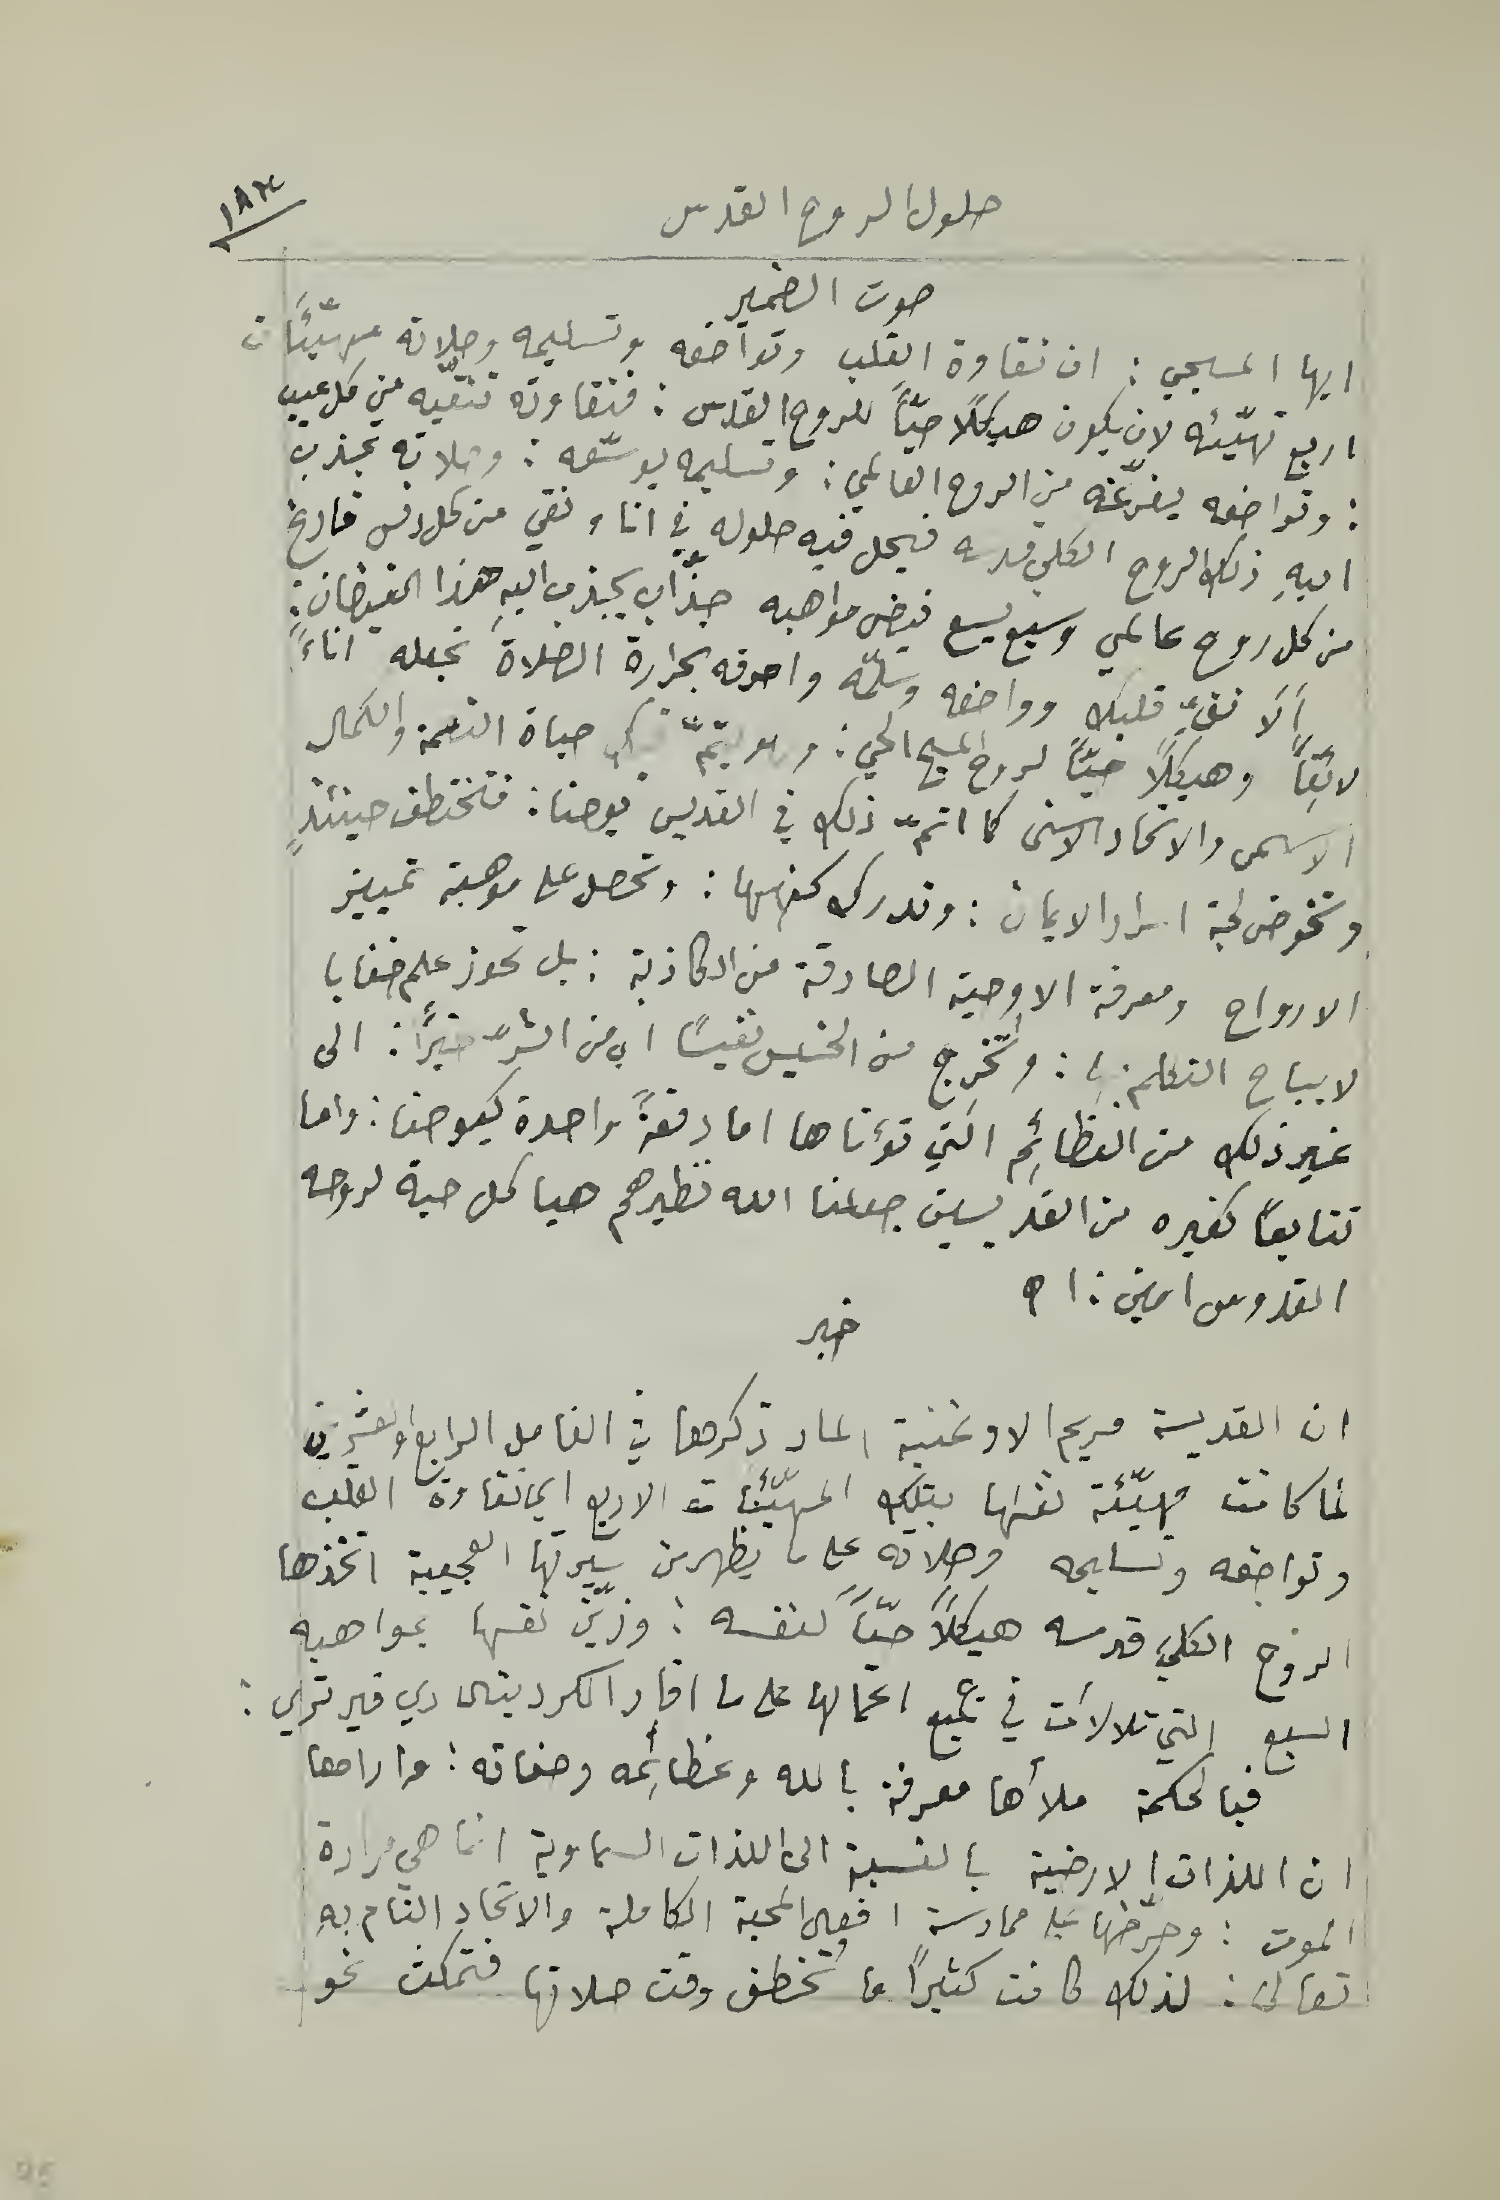 حلول الروح القدس
١٨٣
صوت الضمير
ايها المسيحي : ان نقاوة القلب وتواضعه وتسليمه وصلاته مهيّئَات
اربع تهيّئه لان يكون هيكلًا حيًّا للروح القدس : فنقاوته تنقّيه من كل عيب
: وتواضعه يفرّغه من الروح العالمي : وتسليمه يوسّعه : وصلاته تجذب
اليهِ ذلك الروح الكلي قدسه فيحل فيه حلوله في اناء نقي من كل دنس فارغ
من كل روح عالمي وسيع يسع فيض مواهبه جذّاب يجذب اليهِ هذا الفيضان :
اَلَا نقِّ قلبك وواضعه وسلّمه واحرقه بحرارة الصلاة تجعله اناءً
لائقاً وهيكلًا حيًّا لروح المسيح الحي : وهو يتمّ حياة النعمة والكمال
الاسمى والاتحاد الاسنى كما اتمّ ذلك في القديس يوحنا : فتختطف حينئذٍ
وتخوض لجة اسرار الايمان : وتدرك كنهها : وتحصل على موهبة تمييز
الارواح ومعرفة الاوحية الصادقة من الكاذبة : بل تحوز علم خفايا
لا يباح التكلم بها : وتُخرج من الخسيس نفيسًا اي من الشرّ خيرًا : الى
غير ذلك من العظائم التي تؤتاها اما دفعةً واحدة كيوحنا : واما
تتابعًا كغيره من القديسين جعلنا الله نظيرهم هياكل حية لروحه
القدوس امين : ا ه
خبر
ان القديسة مريم الاوغنية المار ذكرها في الفاصل الرابع والعشرين
لما كانت مهيّئة نفسها بتلك المهيّئات الاربع اي نقاوة القلب
وتواضعه وتسليمه وصلاته على ما يظهر من سيرتها العجيبة اتخذها
الروح الكلي قدسه هيكلًا حيًّا لنفسه : وزيّن نفسها بمواهبه
السبع التي تلالأت في جميع اعمالها على ما افاد الكردينال دي فيرتري :
فبالحكمة ملأها معرفة بالله وعظائمه وصفاته : وارامها
ان اللذات الارضية بالنسبة الى اللذات السماوية انما هي مرارة
الموت : وحرّضها على ممارسة افعال المحبة الكاملة والاتحاد التام به
تعالى : لذلك كانت كثيرًا ما تُخطف وقت صلاتها فتمكث نحو